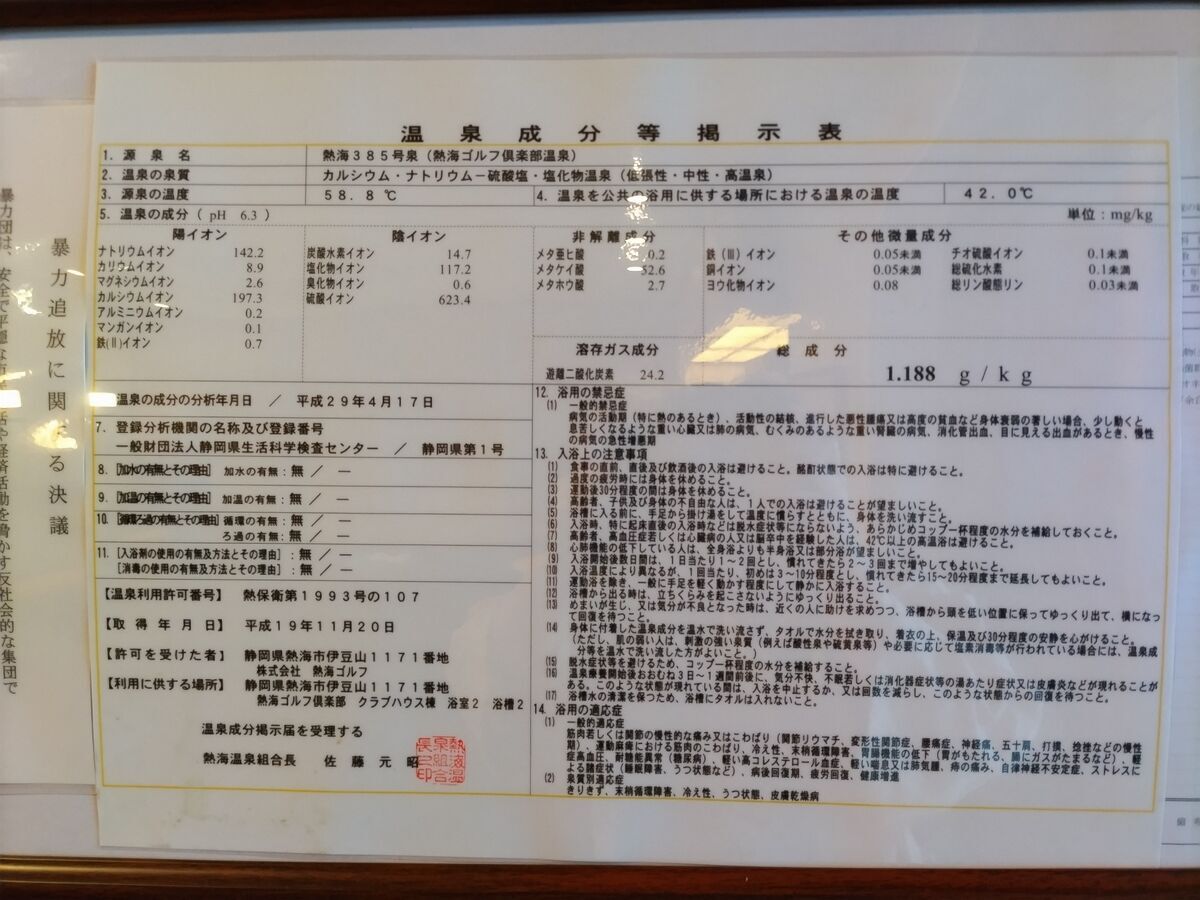 温泉成分等掲示表
1. 源泉名 熱海385号泉(熱海ゴルフ倶楽部温泉)
2. 温泉の泉質 カルシウム・ナトリウムー硫酸塩・塩化物温泉(低張性・中性・高温泉)
3. 源泉の温度 58.8℃ 4. 温泉を公共の浴用に供する場所における温泉の温度 42.0℃
5. 温泉の成分( pH 6.3 ) 単位:mg/kg
陽イオン
ナトリウムイオン 142.2
カリウムイオン 8.9
マグネシウムイオン 2.6
カルシウムイオン 197.3
アルミニウムイオン 0.2
マンガンイオン 0.1
鉄(Ⅱ)イオン 0.7
陰イオン
炭酸水素イオン 14.7
塩化物イオン 117.2
臭化物イオン 0.6
硫酸イオン 623.4
非解離成分
メタ亜ヒ酸 0.2
メタケイ酸 52.6
メタホウ酸 2.7
その他微量成分
鉄(Ⅲ)イオン 0.05未満
銅イオン 0.05未満
ヨウ化物イオン 0.08
チオ硫酸イオン 0.1未満
総硫化水素 0.1未満
総リン酸態リン 0.03未満
溶存ガス成分
遊離二酸化炭素 24.2
総成分
1.188 g/kg
温泉の成分の分析年月日 / 平成29年4月17日
7. 登録分析機関の名称及び登録番号
一般財団法人静岡県生活科学検査センター / 静岡県第1号
8. [加水の有無とその理由] 加水の有無:無 / ー
9. [加温の有無とその理由] 加温の有無:無 / ー
10. [循環ろ過の有無とその理由] 循環の有無:無 / ー
ろ過の有無:無 / ー
11. [入浴剤の使用の有無及方法とその理由] :無 / ー
[消毒の使用の有無及方法とその理由] :無 / ー
【温泉利用許可番号】 熱保衛第1993号の107
【取得年月日】 平成19年11月20日
【許可を受けた者】 静岡県熱海市伊豆山1171番地
株式会社 熱海ゴルフ
【利用に供する場所】 静岡県熱海市伊豆山1171番地
熱海ゴルフ倶楽部 クラブハウス棟 浴室2 浴槽2
温泉成分掲示届を受理する
熱海温泉組合長 佐藤元昭
熱海温
泉組合
長之印
12. 浴用の禁忌症
(1) 一般的禁忌症
病気の活動期(特に熱のあるとき)、活動性の結核、進行した悪性腫瘍又は高度の貧血など身体衰弱の著しい場合、少し動くと
息苦しくなるような重い心臓又は肺の病気、むくみのあるような重い腎臓の病気、消化管出血、目に見える出血があるとき、慢性
の病気の急性増悪期
13. 入浴上の注意事項
(1) 食事の直前、直後及び飲酒後の入浴は避けること。酩酊状態での入浴は特に避けること。
(2) 過度の疲労時には身体を休めること。
(3) 運動後30分程度の間は身体を休めること。
(4) 高齢者、子供及び身体の不自由な人は、1人での入浴は避けることが望ましいこと。
(5) 浴槽に入る前に、手足から掛け湯をして温度に慣らすとともに、身体を洗い流すこと。
(6) 入浴時、特に起床直後の入浴時などは脱水症状等にならないよう、あらかじめコップ一杯程度の水分を補給しておくこと。
(7) 高齢者、高血圧症若しくは心臓病の人又は脳卒中を経験した人は、42℃以上の高温浴は避けること。
(8) 心肺機能の低下している人は、全身浴よりも半身浴又は部分浴が望ましいこと。
(9) 入浴開始後数日間は、1日当たり1〜2回とし、慣れてきたら2〜3回まで増やしてもよいこと。
(10) 入浴温度により異なるが、1回当たり、初めは3〜10分程度とし、慣れてきたら15〜20分程度まで延長してもよいこと。
(11) 運動浴を除き、一般に手足を軽く動かす程度にして静かに入浴すること。
(12) 浴槽から出る時は、立ちくらみを起こさないようにゆっくり出ること。
(13) めまいが生じ、又は気分が不良となった時は、近くの人に助けを求めつつ、浴槽から頭を低い位置に保ってゆっくり出て、横になっ
て回復を待つこと。
(14) 身体に付着した温泉成分を温水で洗い流さず、タオルで水分を拭き取り、着衣の上、保温及び30分程度の安静を心がけること。
(ただし、肌の弱い人は、刺激の強い泉質(例えば酸性泉や硫黄泉等)や必要に応じて塩素消毒等が行われている場合には、温泉成
分等を温水で洗い流した方がよいこと。)
(15) 脱水症状等を避けるため、コップ一杯程度の水分を補給すること。
(16) 温泉療養開始後おおむね3日〜1週間前後に、気分不快、不眠若しくは消化器症状等の湯あたり症状又は皮膚炎などが現れることが
ある。このような状態が現れている間は、入浴を中止するか、又は回数を減らし、このような状態からの回復を待つこと。
(17) 浴槽水の清潔を保つため、浴槽にタオルは入れないこと。
14. 浴用の適応症
(1) 一般的適応症
筋肉若しくは関節の慢性的な痛み又はこわばり(関節リウマチ、変形性関節症、腰痛症、神経痛、五十肩、打撲、捻挫などの慢性
期)、運動麻痺における筋肉のこわばり、冷え性、末梢循環障害、胃腸機能の低下(胃がもたれる、腸にガスがたまるなど)、軽
症高血圧、耐糖能異常(糖尿病)、軽い高コレステロール血症、軽い喘息又は肺気腫、痔の痛み、自律神経不安定症、ストレスに
よる諸症状(睡眠障害、うつ状態など)、病後回復期、疲労回復、健康増進
(2) 泉質別適応症
きりきず、末梢循環障害、冷え性、うつ状態、皮膚乾燥病
暴力追放に関する決議
暴力団は、安全で平穏な市民生活や経済活動を脅かす反社会的な集団で